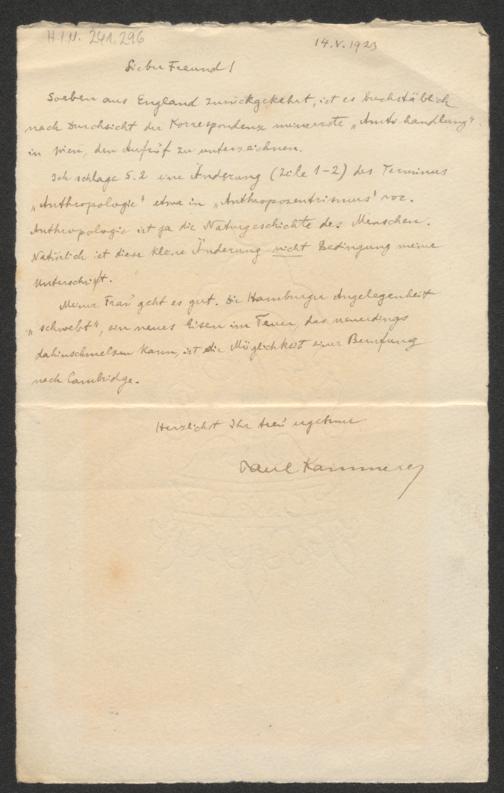 H.I.N. 241.296
14.V.1923
Lieber Freund!
Soeben aus England zurückgekehrt, ist es buchstäblich
nach Durchsicht der Korrespondenz meine erste „Amtshandlung“
in Wien, den Aufruf zu unterzeichnen.
Ich schlage S. 2 eine Änderung (Zeile 1–2) des Terminus
„Anthropologie“ etwa in „Anthropozentrismus“ vor.
Anthropologie ist ja die Naturgeschichte des Menschen.
Natürlich ist diese kleine Änderung nicht Bedingung meiner
Unterschrift.
Meiner Frau geht es gut. Die Hamburger Angelegenheit
„schwebt“, ein neues Eisen im Feuer, das neuerdings
dahinschmelzen kann, ist die Möglichkeit einer Berufung
nach Cambridge.
Herzlichst Ihr treu ergebener
Paul Kammerer